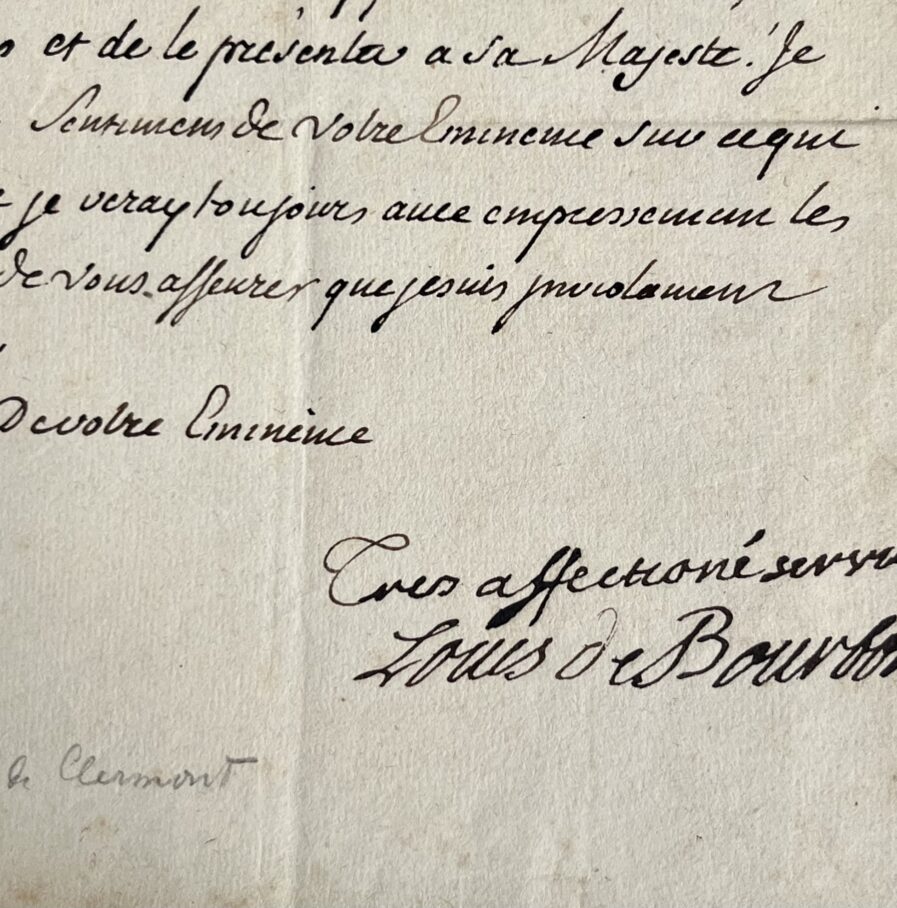 et de le présenter a sa Majesté. Je
Sentimens de votre Eminence sur ce qui
je veray toujours avec empressement les
de vous asseurer que je suis
De votre Eminence
Tres affectioné servi
Louis de Bourbon
de Clermont